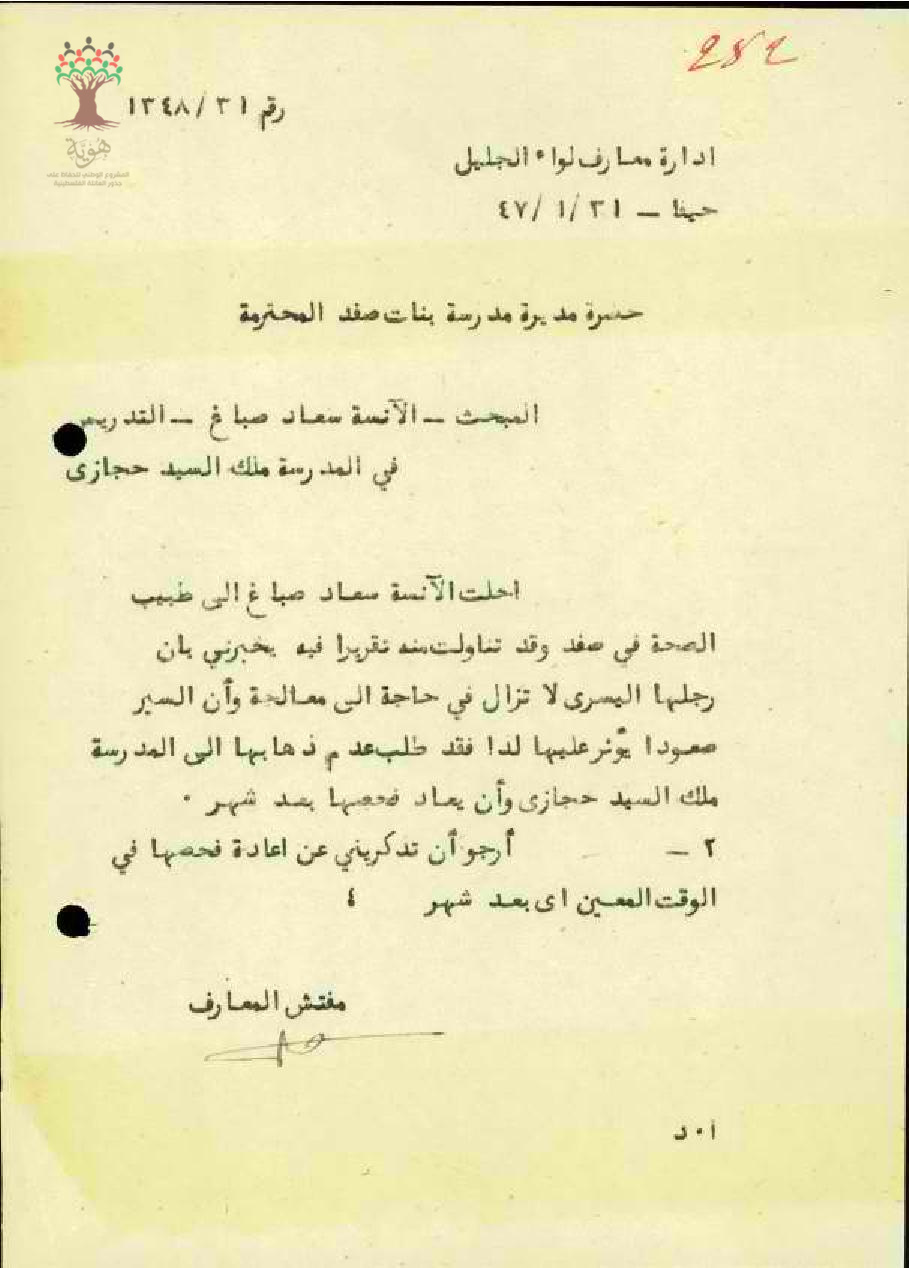 282
رقم ١٣٤٨/٣١
هُويَّة
المشروع الوطني للحفاظ على
جذور العائلة الفلسطينية
ادارة معارف لواء الجليل
حيفا – ٤٧/١/٣١
حضرة مديرة مدرسة بنات صفد المحترمة
المبحث – الآنسة سعاد صباغ – التدريس
في المدرسة ملك السيد حجازى
احلت الآنسة سعاد صباغ الى طبيب
الصحة في صفد وقد تناولت منه تقريرا فيه يخبرني بان
رجلها اليسرى لا تزال في حاجة الى معالجة وأن السير
صعودا يؤثر عليها لذا فقد طلب عدم ذهابها الى المدرسة
ملك السيد حجازى وأن يعاد فحصها بعد شهر ٠
٢ – أرجو أن تذكريني عن اعادة فحصها في
الوقت المعين اى بعد شهر ٤
مفتش المعارف
ا ٠ د